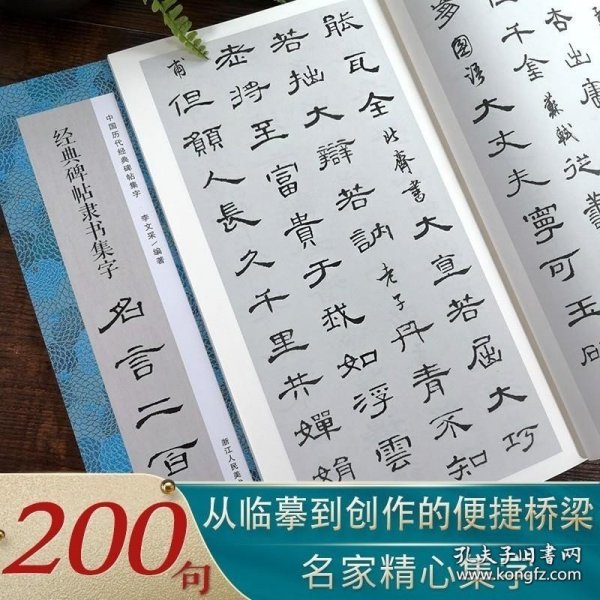 杏出
千金 蘇軾 從
國語 大丈夫寧可玉
能瓦全 北齊書 大直若屈大巧
若拙大辯若訥 老子 丹青不知
老將至富貴于我如浮雲
甫 但願人長久千里共嬋娟
中国历代经典碑帖集字 李文采/编著
经典碑帖隶书集字
名言二百
浙江人民美
200句
从临摹到创作的便捷桥梁
名家精心集字
孔夫子旧书网
www.kongfz.com